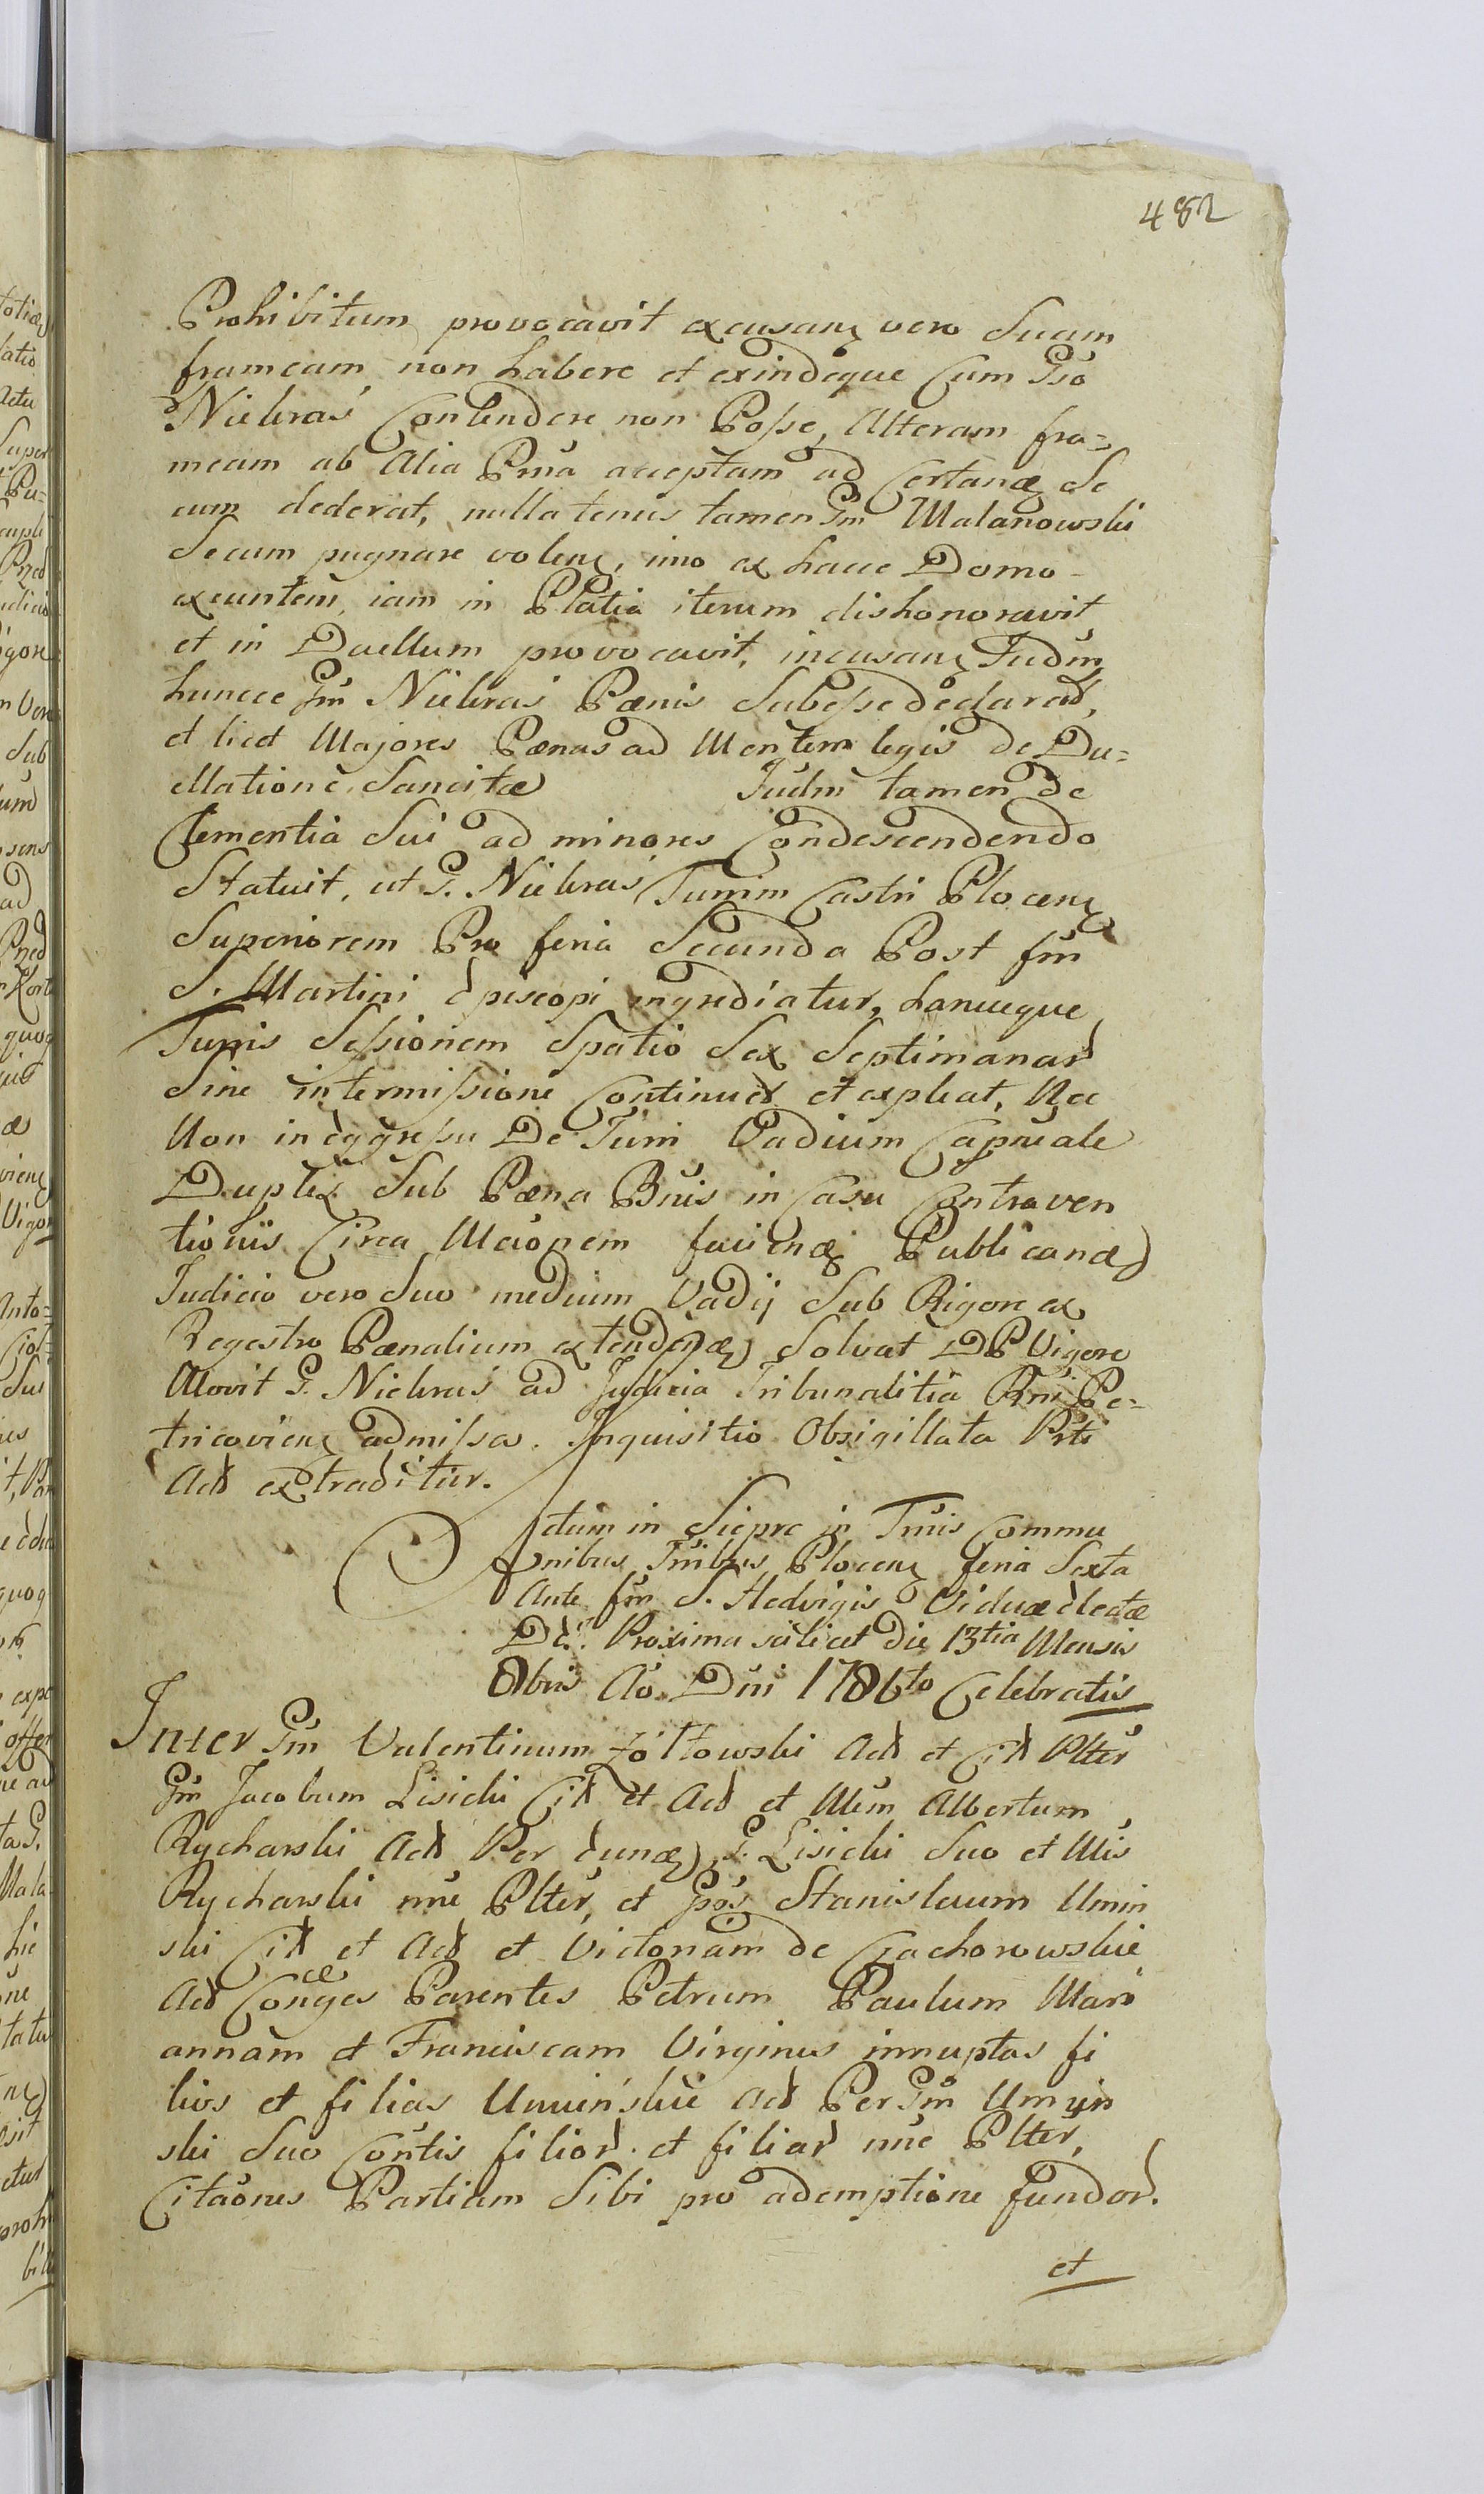 482
Prohibitum provocavit excusans vero Suam
frameam non habere et exindeque Cum Gso
Niebras Contendere non Posse, Alteram fra=
meam ab Alia Prna acceptam ad Certand Se
cum dederat, nullatenus tamen Gm Malanowski
Secum pugnare volens, imo ex hacce Domo
exeuntem, iam in Platia iterum dishonoravit
et in Duellum provocavit, incusans Judm
huncce Gm Niebras Pænis Subesse declarat,
et licet Majores Pænas ad Mentem legis de Du=
ellatione Sancitæ Judm tamen de
Clementia Sui ad minores Condescendendo
Statuit, ut G. Niebras Turrim Castri Plocens
Superiorem Pro feria Secunda Post fm
S. Martini Episcopi ingrediatur, hancceque
Turris Sessionem Spatio Sex Septimanar
Sine intermissione Continuet et expleat, Nec
Non in eggressu De Turri Vadium Capneale
Duplex Sub Pæna Bnis in Casu Contraven
tionis Circa Mcionem faciend Publicand
Judicio vero Suo medium Vadij Sub Rigore ex
Regestro Pænalium extendend Solvat DP Vigore
Movit G. Niebras ad Judicia Tribunalitia Rni Pe=
tricoviens admissa. Inquisitio Obsigillata Prti
Act extraditur.
Actum in Sierpc in Trnis Commu
nibus Tribus Plocens feria Sexta
Ante fm S. Hedvigis Viduæ Electæ
Dei Proxima scilicet die 13tia Mensis
8bris Ao Dni 1786to Celebratis
Inter Gm Valentinum Żółtowski Act et Cit Plter
Gm Jacobum Lisicki Cit et Act et Mum Albertum
Rycharski Act Per eund G. Lisicki Suo et Mis
Rycharski nne Plter, et Gos Stanislaum Umin
ski Cit et Act et Victoriam de Czachorowskie
Act Conges Parentes Petrum Paulum Mari
annam et Franciscam Virgines innuptas fi
lios et filias Umińskie Act Per Gm Umin
ski Suo Contis filior. et filiar nne Plter,
Citaones Partium Sibi pro ademptione fundor.
et